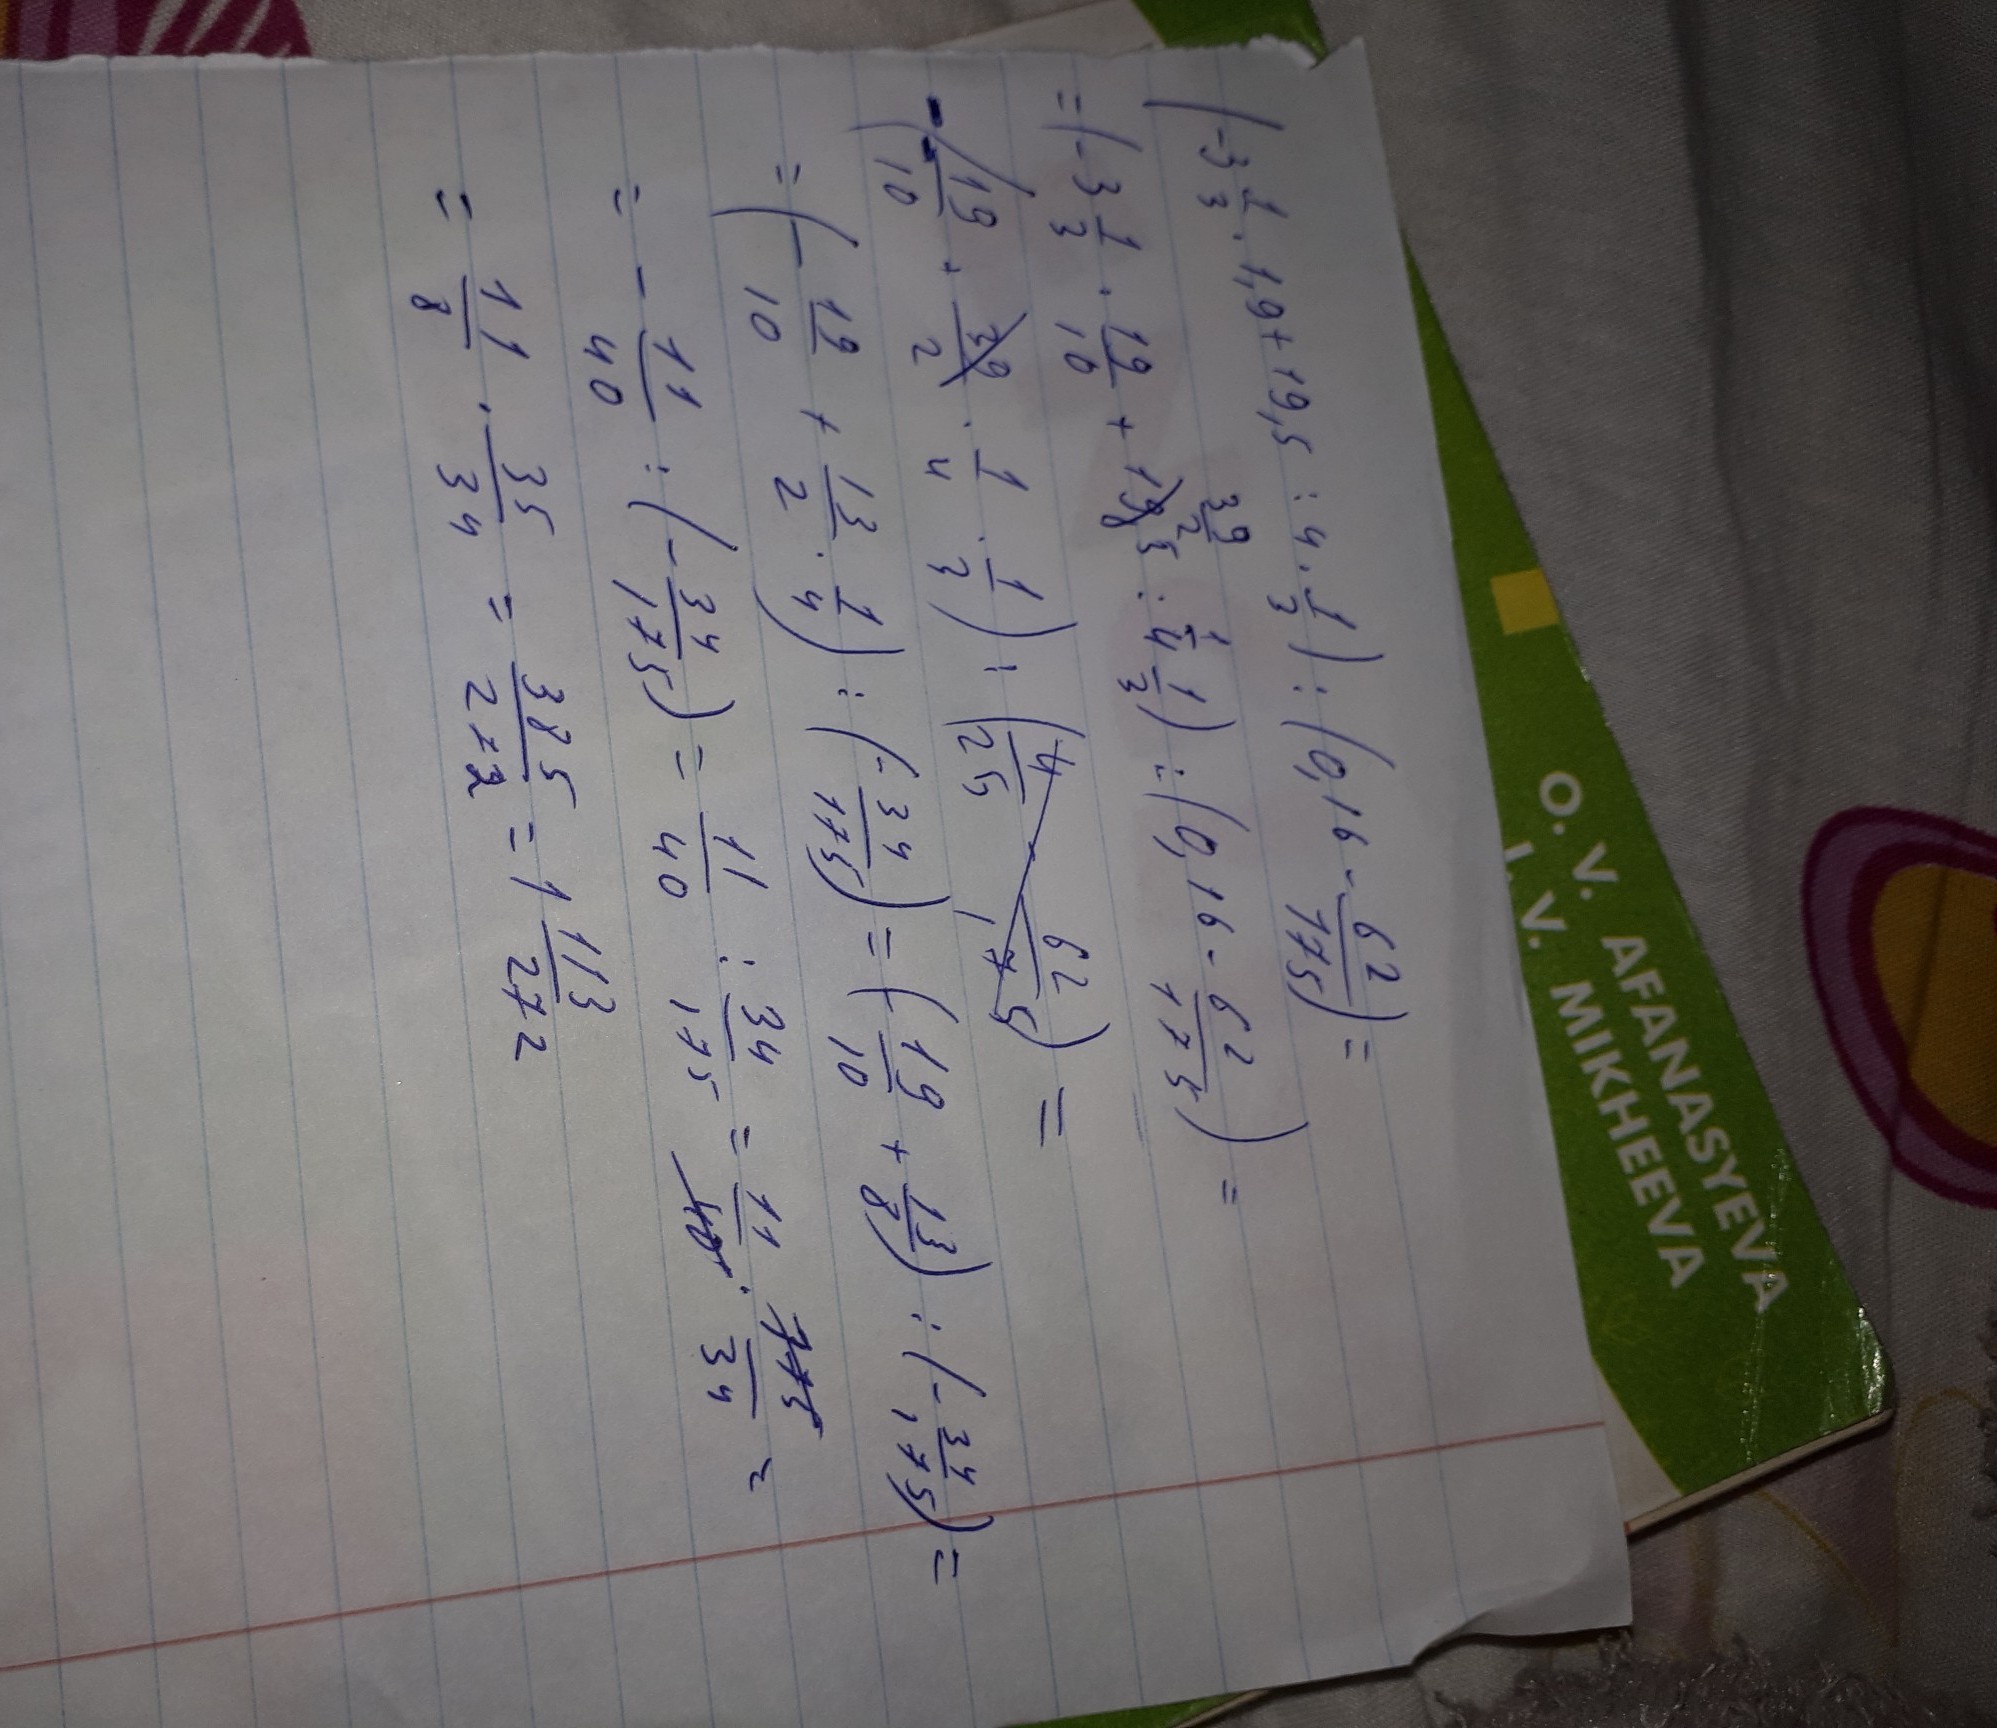 (-3 1/3 · 1,9 + 19,5 : 4 · 1/3) : (0,16 - 62/175) =
= (-3 1/3 · 19/10 + 39/2 : 1/4 1/3) : (0,16 - 62/175) =
-(19/10 + 39/2 · 1/4 · 1/3) : (4/25 - 62/175) =
= (-19/10 + 13/2 · 1/4) : (-34/175) = (-19/10 + 13/8) : (-34/175) =
= -11/40 : (-34/175) = 11/40 : 34/175 = 11/40 · 175/34 =
= 11/8 · 35/34 = 385/272 = 1 113/272
O. V. AFANASYEVA
I. V. MIKHEEVA